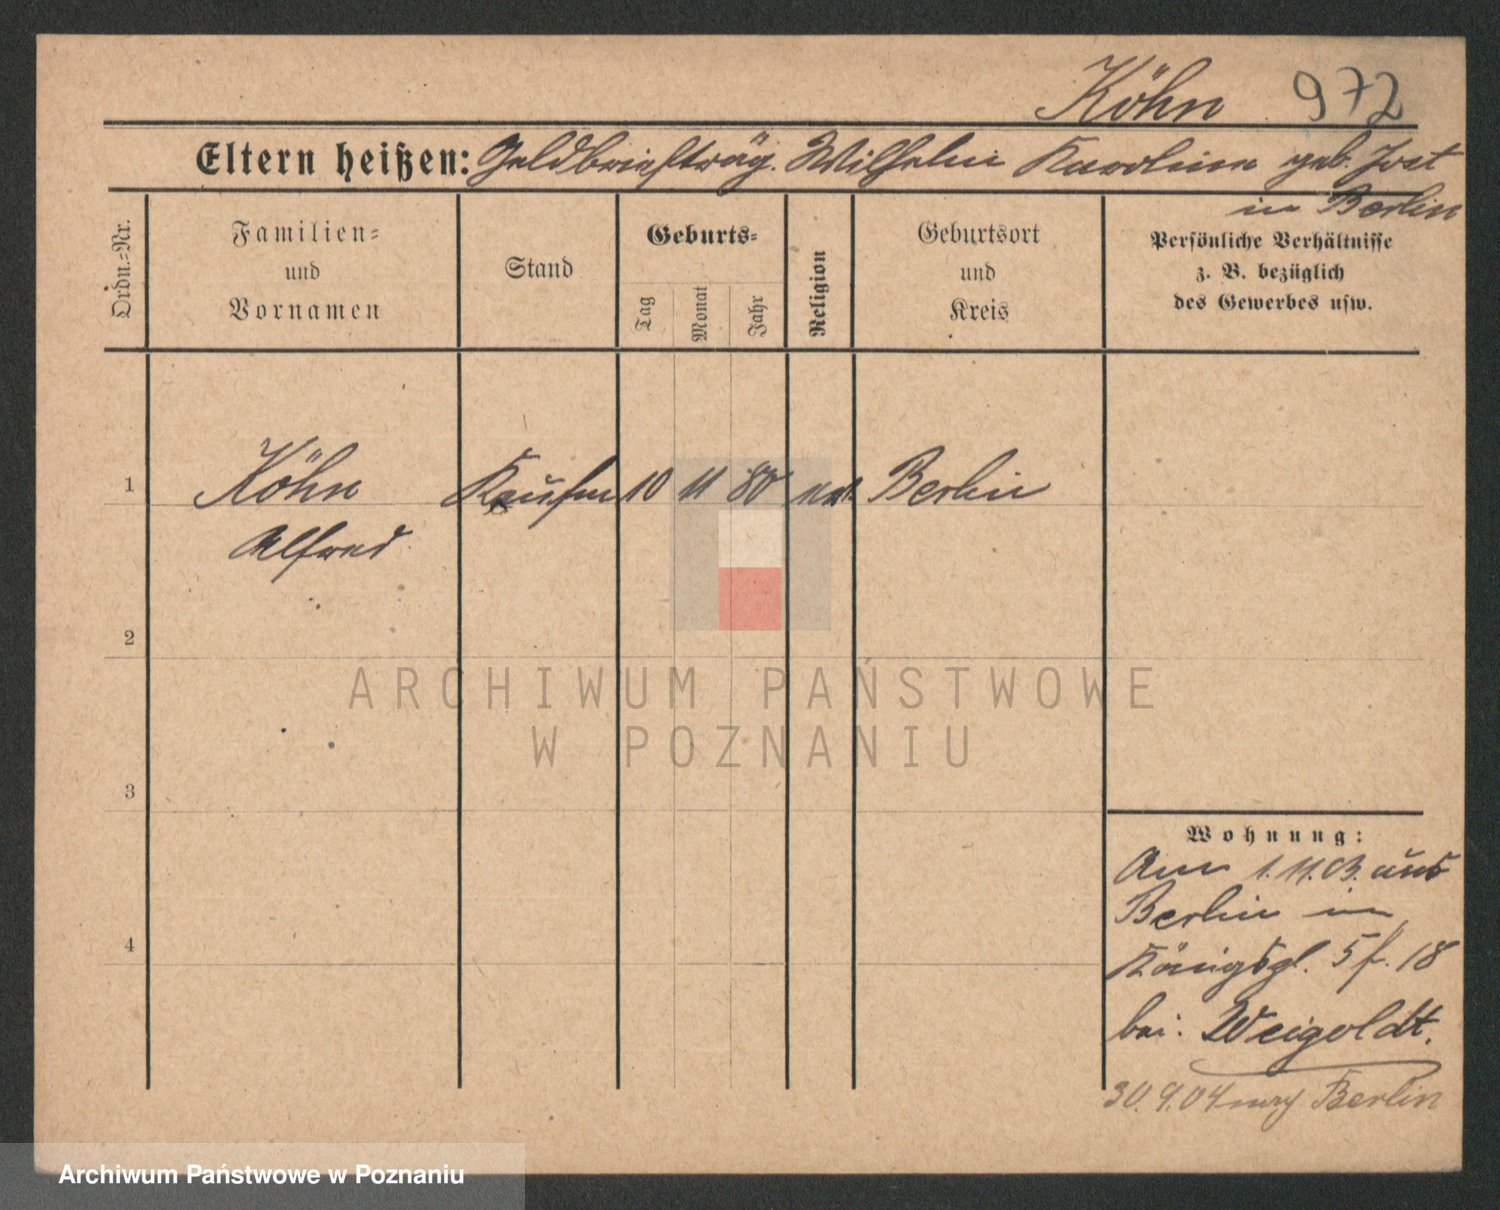 Köhn 972
Eltern heißen: Geldbriefträg. Wilhelm Karoline geb. Jost
in Berlin
Ordn.-Nr.
Familien-
und
Vornamen
Stand
Geburts-
Tag
Monat
Jahr
Religion
Geburtsort
und
Kreis
Persönliche Verhältnisse
z. B. bezüglich
des Gewerbes usw.
1 Köhn Kaufm 10 11 80 Berlin
Alfred
2
ARCHIWUM PAŃSTWOWE
W POZNANIU
3
Wohnung:
Am 1.11.03. aus
Berlin in
Königspl. 5 f. 18
bei. Weigoldt.
4
30.9.04 nach Berlin
Archiwum Państwowe w Poznaniu